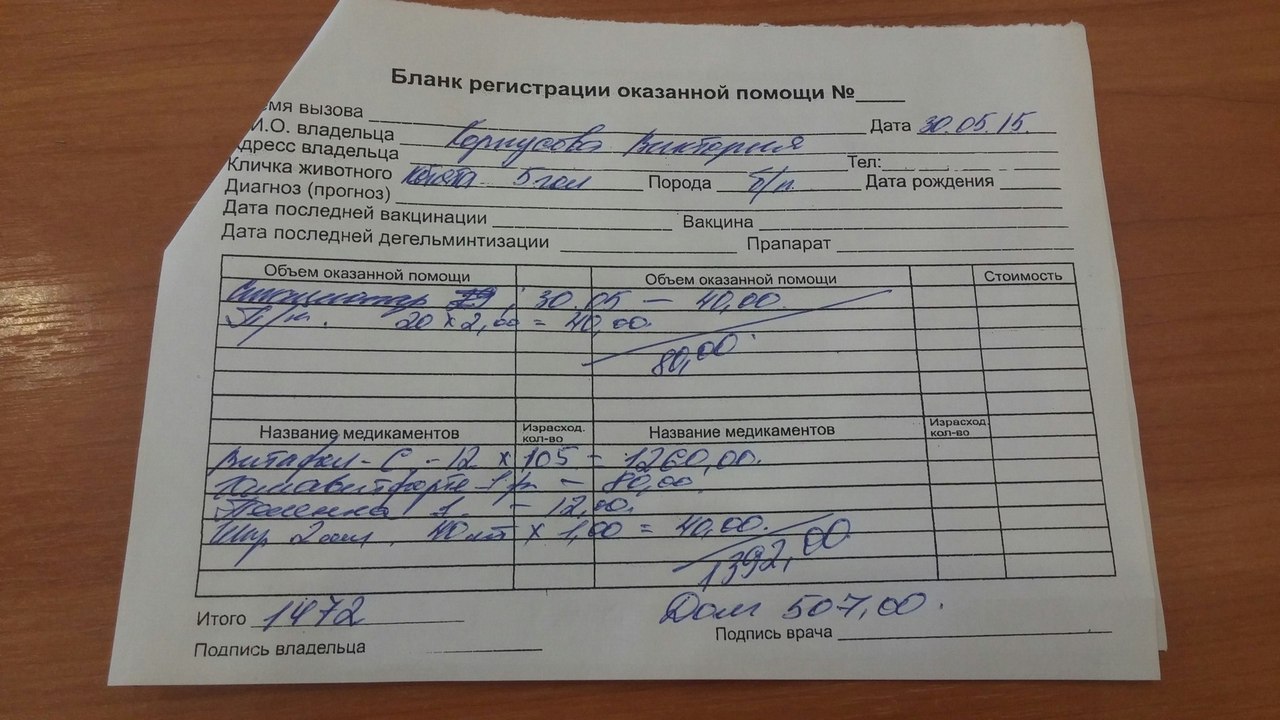 Бланк регистрации оказанной помощи №____
емя вызова Дата 30.05.15.
И.О. владельца Корпусова Виктория
дресс владельца Тел:
Кличка животного Котята 5 гол Порода б/п Дата рождения
Диагноз (прогноз)
Дата последней вакцинации Вакцина
Дата последней дегельминтизации Прапарат
Объем оказанной помощи Объем оказанной помощи Стоимость
30.05 – 40,00.
20 x 2,00 = 40,00.
80,00
Название медикаментов Израсход. кол-во Название медикаментов Израсход. кол-во
Витафел-С – 12 x 105 – 1260,00.
Гамавитфорте 1 – 80,00
Пеленка 1. – 12,00.
Шпр 2 мл, 40 шт x 1,00 = 40,00.
1392,00
Итого 1472 Долг 507,00.
Подпись владельца Подпись врача